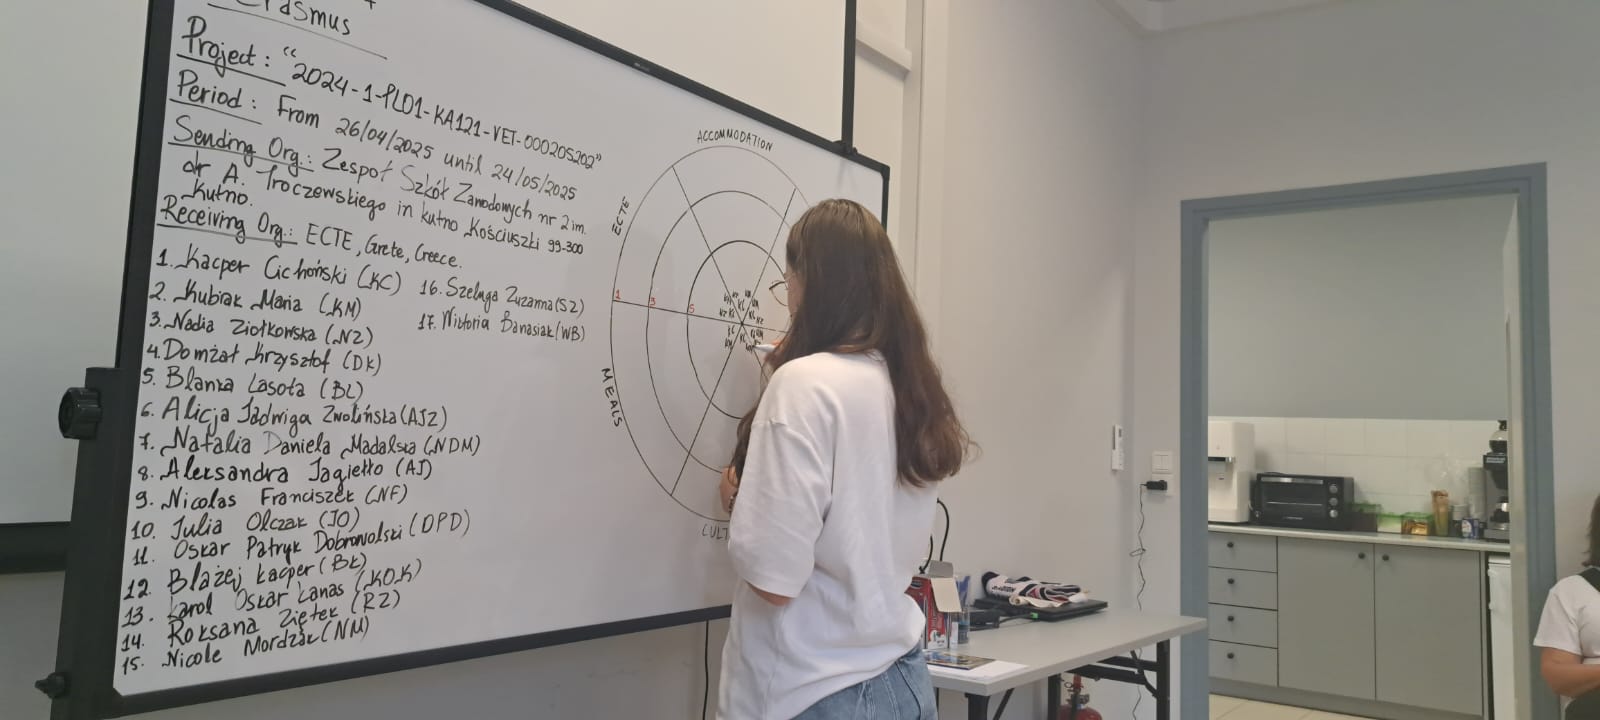 Erasmus +
Project: "2024-1-PL01-KA121-VET-000205202"
Period: From 26/04/2025 until 24/05/2025
Sending Org.: Zespoł Szkół Zawodowych nr 2 im.
dr A. Troczewskiego in kutno Kościuszki 99-300
Kutno.
Receiving Org.: ECTE, Crete, Greece.
1. Kacper Cichoński (KC)
2. Kubiak Maria (KM)
3. Nadia Ziołkowska (NZ)
4. Domżał Krzysztof (DK)
5. Blanka Lasota (BL)
6. Alicja Jadwiga Zwolińska (AJZ)
7. Natalia Daniela Madalska (NDM)
8. Aleksandra Jagiełło (AJ)
9. Nicolas Franciszek (NF)
10. Julia Olczak (JO)
11. Oskar Patryk Dobrowolski (OPD)
12. Błażej kacper (BK)
13. Karol Oskar Kanas (KOK)
14. Roksana Ziętek (RZ)
15. Nicole Mordzak (NM)
16. Szeluga Zuzanna (SZ)
17. Wiktoria Banasiak (WB)
ACCOMMODATION
ECTE
1 3 5
MEALS
CULT